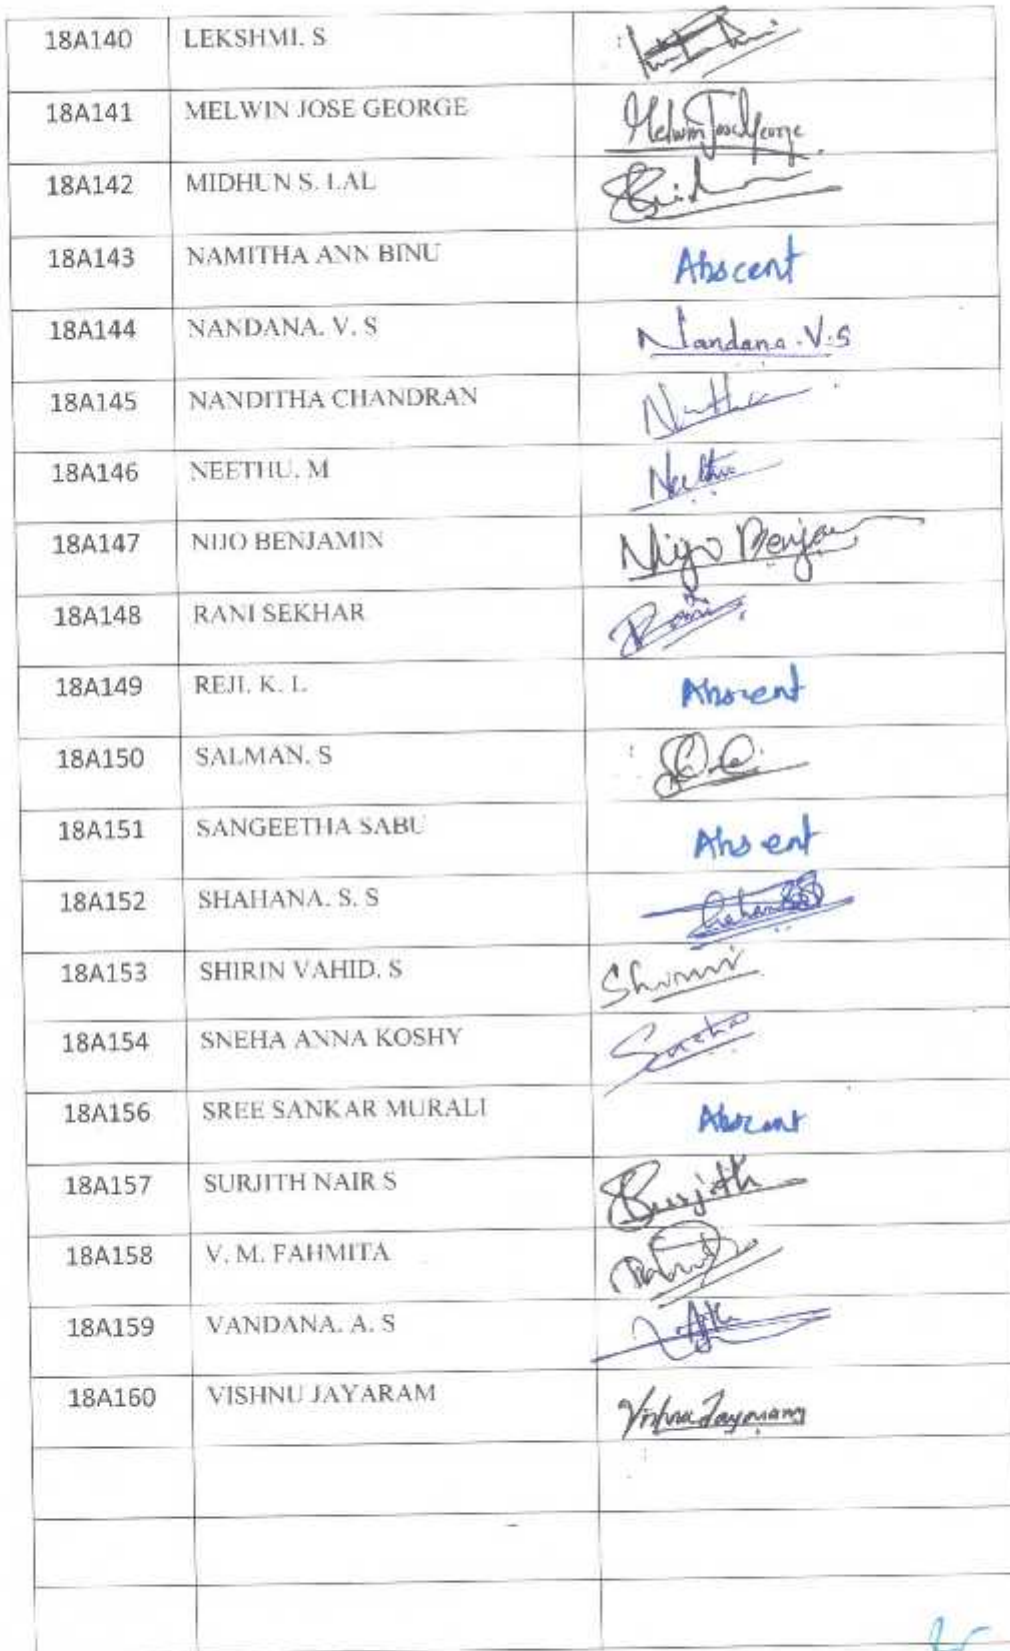 18A140 LEKSHMI. S
18A141 MELWIN JOSE GEORGE Melwin Jose George
18A142 MIDHUN S. LAL
18A143 NAMITHA ANN BINU Abscent
18A144 NANDANA. V. S Nandana.V.S
18A145 NANDITHA CHANDRAN
18A146 NEETHU. M Neethu
18A147 NIJO BENJAMIN Nijo Benjam
18A148 RANI SEKHAR Rani
18A149 REJI. K. L Absent
18A150 SALMAN. S
18A151 SANGEETHA SABU Absent
18A152 SHAHANA. S. S
18A153 SHIRIN VAHID. S
18A154 SNEHA ANNA KOSHY Sneha
18A156 SREE SANKAR MURALI Abscent
18A157 SURJITH NAIR S Surjith
18A158 V. M. FAHMITA
18A159 VANDANA. A. S
18A160 VISHNU JAYARAM Vishnu Jayaram